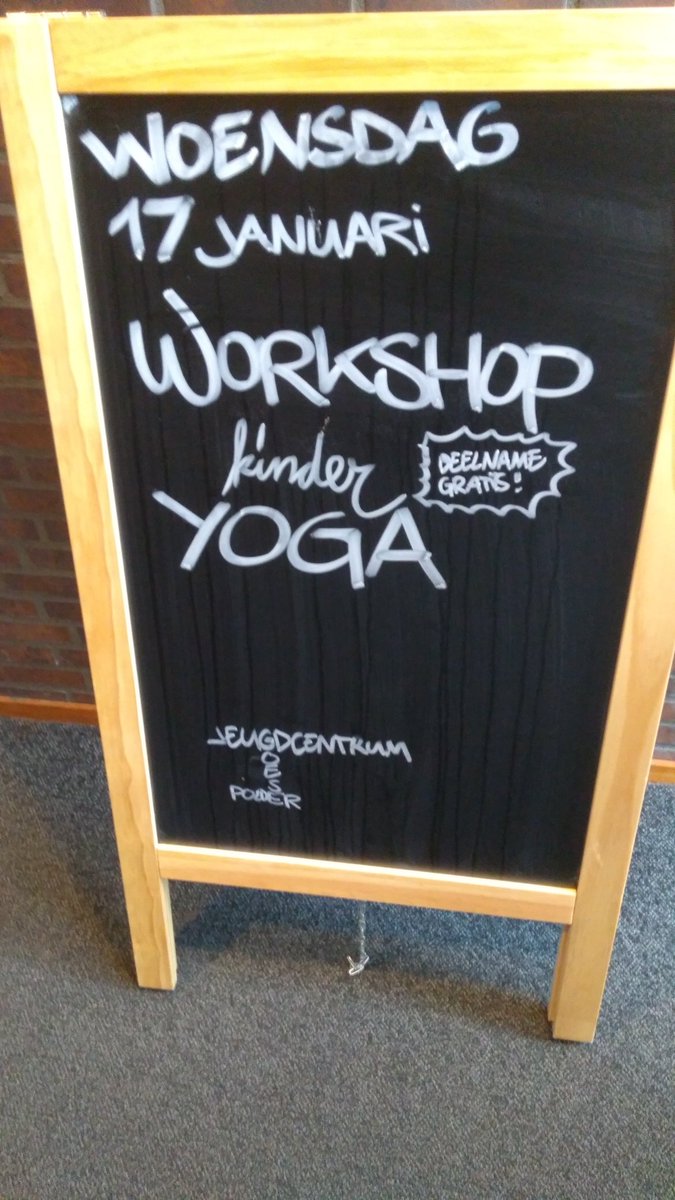 WOENSDAG
17 JANUARI
WORKSHOP
kinder
DEELNAME
GRATIS!
YOGA
JEUGDCENTRUM
GOES
POLDER